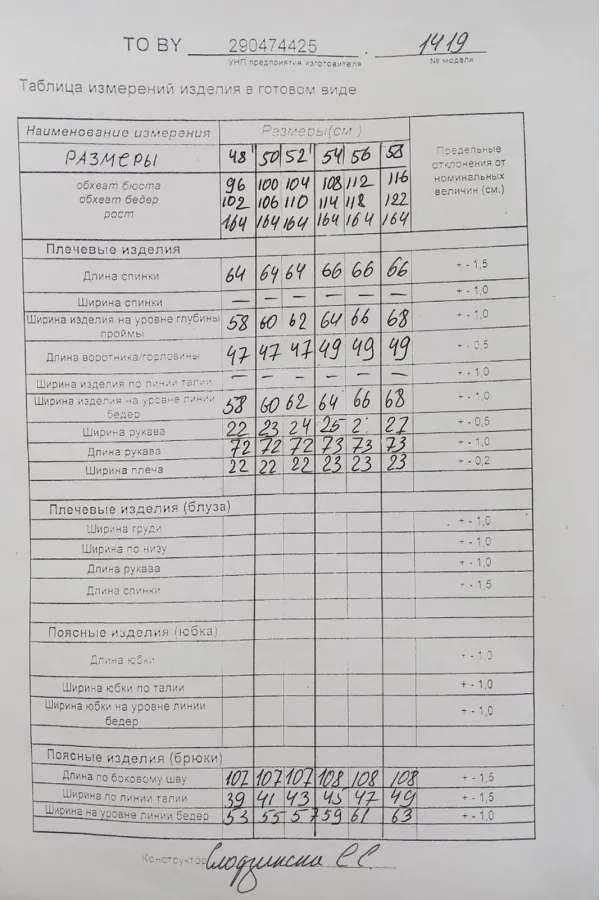 TO BY 290474425 . 1419
УНП предприятия изготовителя № модели
Таблица измерений изделия в готовом виде
Наименование измерения Размеры(см.) Предельные отклонения от номинальных величин (см.)
РАЗМЕРЫ 48 50 52 54 56 58
обхват бюста 96 100 104 108 112 116
обхват бедер 102 106 110 114 118 122
рост 164 164 164 164 164 164
Плечевые изделия
Длина спинки 64 64 64 66 66 66 + - 1,5
Ширина спинки — — — — — — + - 1,0
Ширина изделия на уровне глубины проймы 58 60 62 64 66 68 + - 1,0
Длина воротника/горловины 47 47 47 49 49 49 + - 0,5
Ширина изделия по линии талии — — — — — — + - 1,0
Ширина изделия на уровне линии бедер 58 60 62 64 66 68 + - 1,0
Ширина рукава 22 23 24 25 2 27 + - 0,5
Длина рукава 72 72 72 73 73 73 + - 1,0
Ширина плеча 22 22 22 23 23 23 + - 0,2
Плечевые изделия (блуза)
Ширина груди + - 1,0
Ширина по низу + - 1,0
Длина рукава + - 1,0
Длина спинки + - 1,5
Поясные изделия (юбка)
Длина юбки + - 1,0
Ширина юбки по талии + - 1,0
Ширина юбки на уровне линии бедер + - 1,0
Поясные изделия (брюки)
Длина по боковому шву 107 107 107 108 108 108 + - 1,5
Ширина по линии талии 39 41 43 45 47 49 + - 1,5
Ширина на уровне линии бедер 53 55 57 59 61 63 + - 1,0
Конструктор